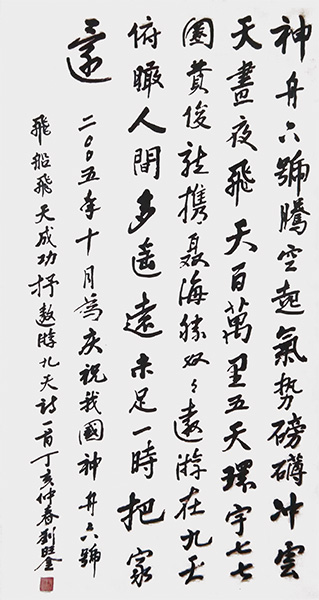 神舟六號騰空起氣势磅礴冲雲
天晝夜飛天百萬里五天環宇七七
圈費俊龍携聂海勝双々遨游在九天
俯瞰人間多遥遠未足一時把家
還
二〇〇五年十月為庆祝我國神舟六號
飛船飛天成功抒遨游九天詩一首丁亥仲春刘旺金